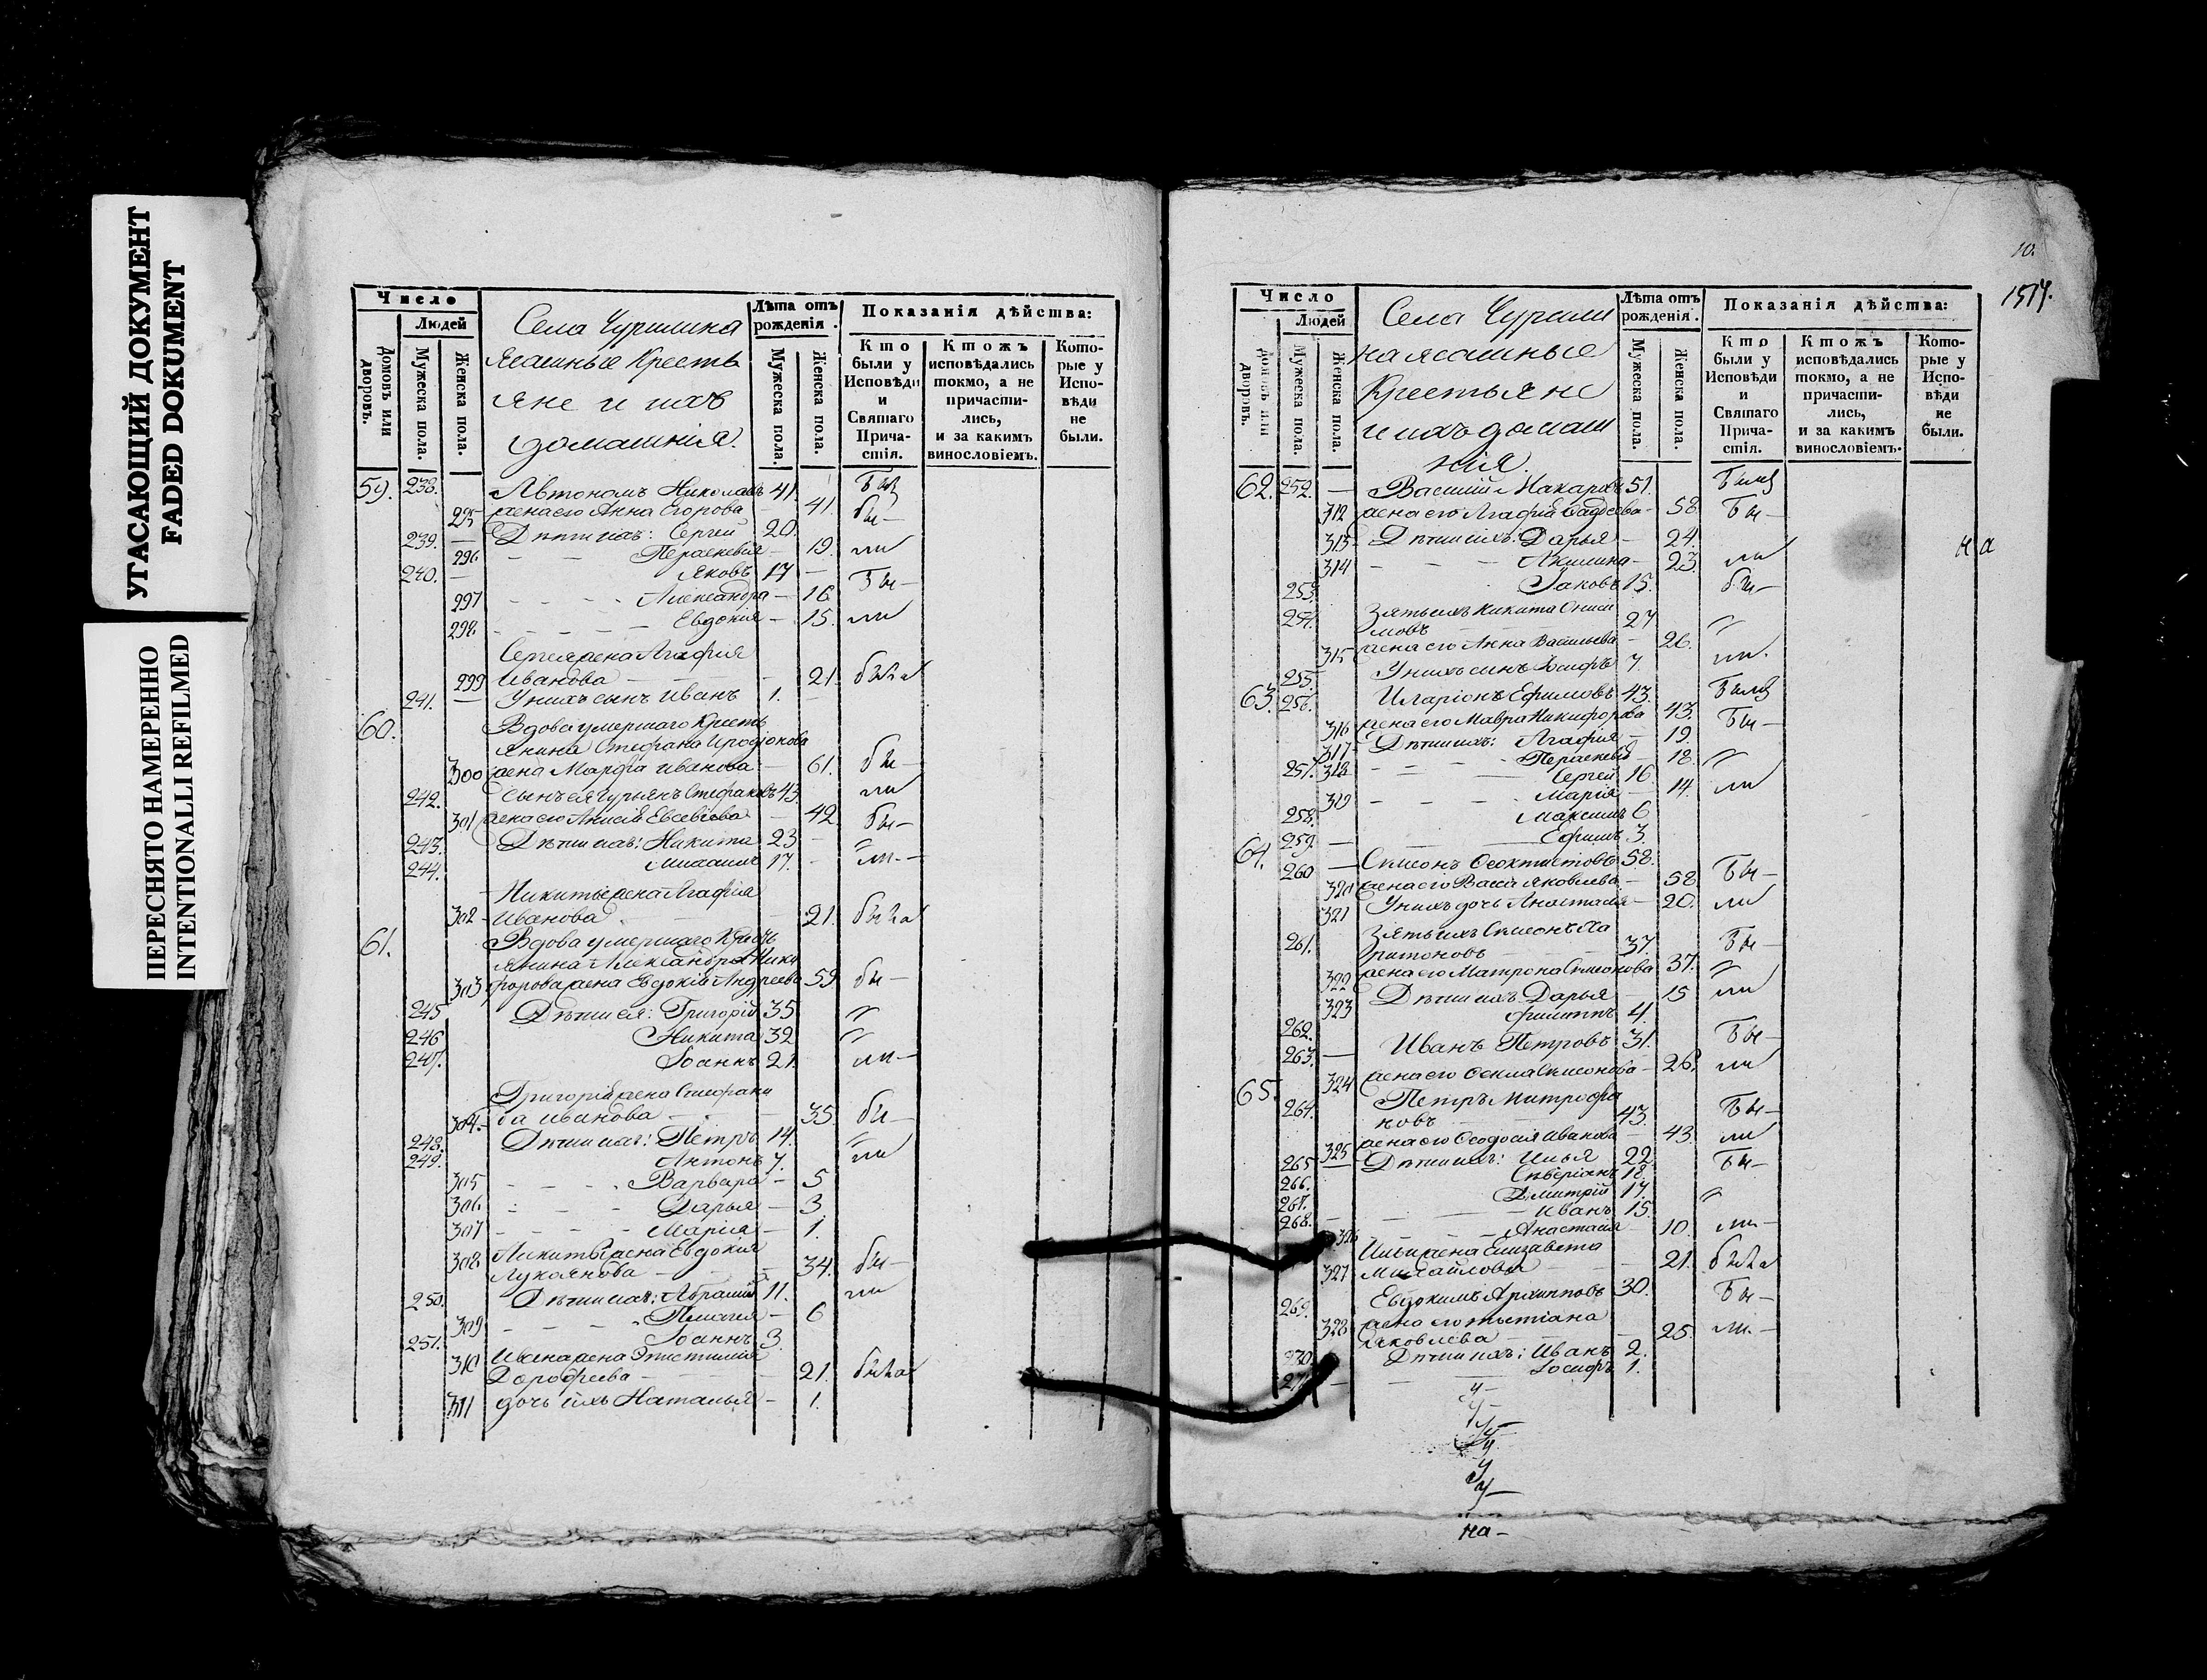 УГАСАЮЩИЙ ДОКУМЕНТ
FADED DOKUMENT
ПЕРЕСНЯТО НАМЕРЕННО
INTENTIONALLI REFILMED
Число
Людей
Домовъ или дворовъ.
Мужеска пола.
Женска пола.
Села Чурилина
Ясашные Кресть
яне и ихъ
домашнія.
Лѣта отъ рожденія.
Мужеска пола.
Женска пола.
Показанія дѣйства:
Кто были у Исповѣди и Святаго Причастія.
Ктожъ исповѣдались токмо, а не причастились, и за какимъ винословіемъ.
Которые у Исповѣди не были.
59. 238. — Автономъ Николаевъ 41. Был
295 жена его Анна Егорова 41. бы—
239. — Дѣти ихъ: Сергей 20.
296 Параскевия 19. ли
240. — Яковъ 17 — Бы—
297 Александра — 16
298 Евдокія — 15. ли
Сергея жена Агафія
299 Иванова 21. была
241. — У нихъ сынъ Иванъ 1.
60. Вдова умершаго Кресть
янина Стефана Иродіонова
300 жена Марфа Иванова — 61. бы—
242. сынъ ея Гурьянъ Стефановъ 43. ли
301 жена его Анисія Евсевіева 42. бы—
243. Дѣти ихъ: Никита 23
244. 17. ли—
Никиты жена Агафія
302 Иванова 21. была
61. Вдова умершаго Кресть
янина Александра Ники
303 форова жена Евдокія Андреева 59 бы—
245 Дѣти ея: Григорій 35
246 Никита 32
247. Іоаннъ 21. ли—
Григорія жена Стефани
304. да Иванова 35. бы—
248. Дѣти ихъ: Петръ 14.
249. Антонъ 7. ли
305 Варвара — 5
306 Дарья — 3
307 Марія — 1.
308 Никиты жена Евдокія
Лукоянова 34. бы—
250. Дѣти ихъ: 11. ли
309 Пелагія — 6
251. Іоаннъ 3.
310 Ивана жена Эпистимія
Дорофеева 21. была
311 дочь ихъ Наталья — 1.
10.
1517.
Число
Людей
Домовъ или дворовъ.
Мужеска пола.
Женска пола.
Села Чурили
на ясашные
Крестьяне
и ихъ домаш
нія.
Лѣта отъ рожденія.
Мужеска пола.
Женска пола.
Показанія дѣйства:
Кто были у Исповѣди и Святаго Причастія.
Ктожъ исповѣдались токмо, а не причастились, и за какимъ винословіемъ.
Которые у Исповѣди не были.
62. 252. — Василій Макаровъ 51. Был
312 жена его Агафія Фадѣева — 58. Бы—
313 Дѣти ихъ: Дарья — 24.
314 Акилина — 23. ли
253. Іаковъ 15. бы—
254. Зять ихъ Никита Ониси
мовъ 27
315 жена его Анна Васильева — 26.
255. У нихъ сынъ Іосифъ 7. ли.
63. 256. Иларіонъ Ефимовъ 43. Был
316 жена его Мавра Никифорова 43. Бы—
317 Дѣти ихъ: Агафія — 19.
318 Параскевія — 18.
257. Сергей 16.
319 Марія — 14. ли
258. Максимъ 6
259. — Ефимъ 3.
64. 260 — Симеонъ Феоктистовъ 58.
320 жена его Васса Яковлева — 58. Бы—
321 У нихъ дочь Анастасія — 20. ли
261. Зять ихъ Симеонъ Ха
ритоновъ 37. Бы—
322 жена его Матрона Симеонова 37.
323 Дѣти ихъ Дарья 15 ли
262. Филиппъ 4.
263. — Иванъ Петровъ 31. Бы—
324 жена его Фекла Симеонова — 26. ли
65. 264. Петръ Митрофа
новъ 43. Бы—
325 жена его Феодосія Иванова 43. ли
265 — Дѣти ихъ: Илья 22 Бы—
266. 18.
267. Димитрій 17.
268. — Иванъ 15.
326 Анастасія 10. ли—
Ильи жена Елизавета
327 Михайлова 21. была
269. Евдокимъ Архипповъ 30. Бы—
328 жена его Татіана
Яковлева 25. ли—
270. Дѣти ихъ: Иванъ 2.
271 — Іосифъ 1.
на—